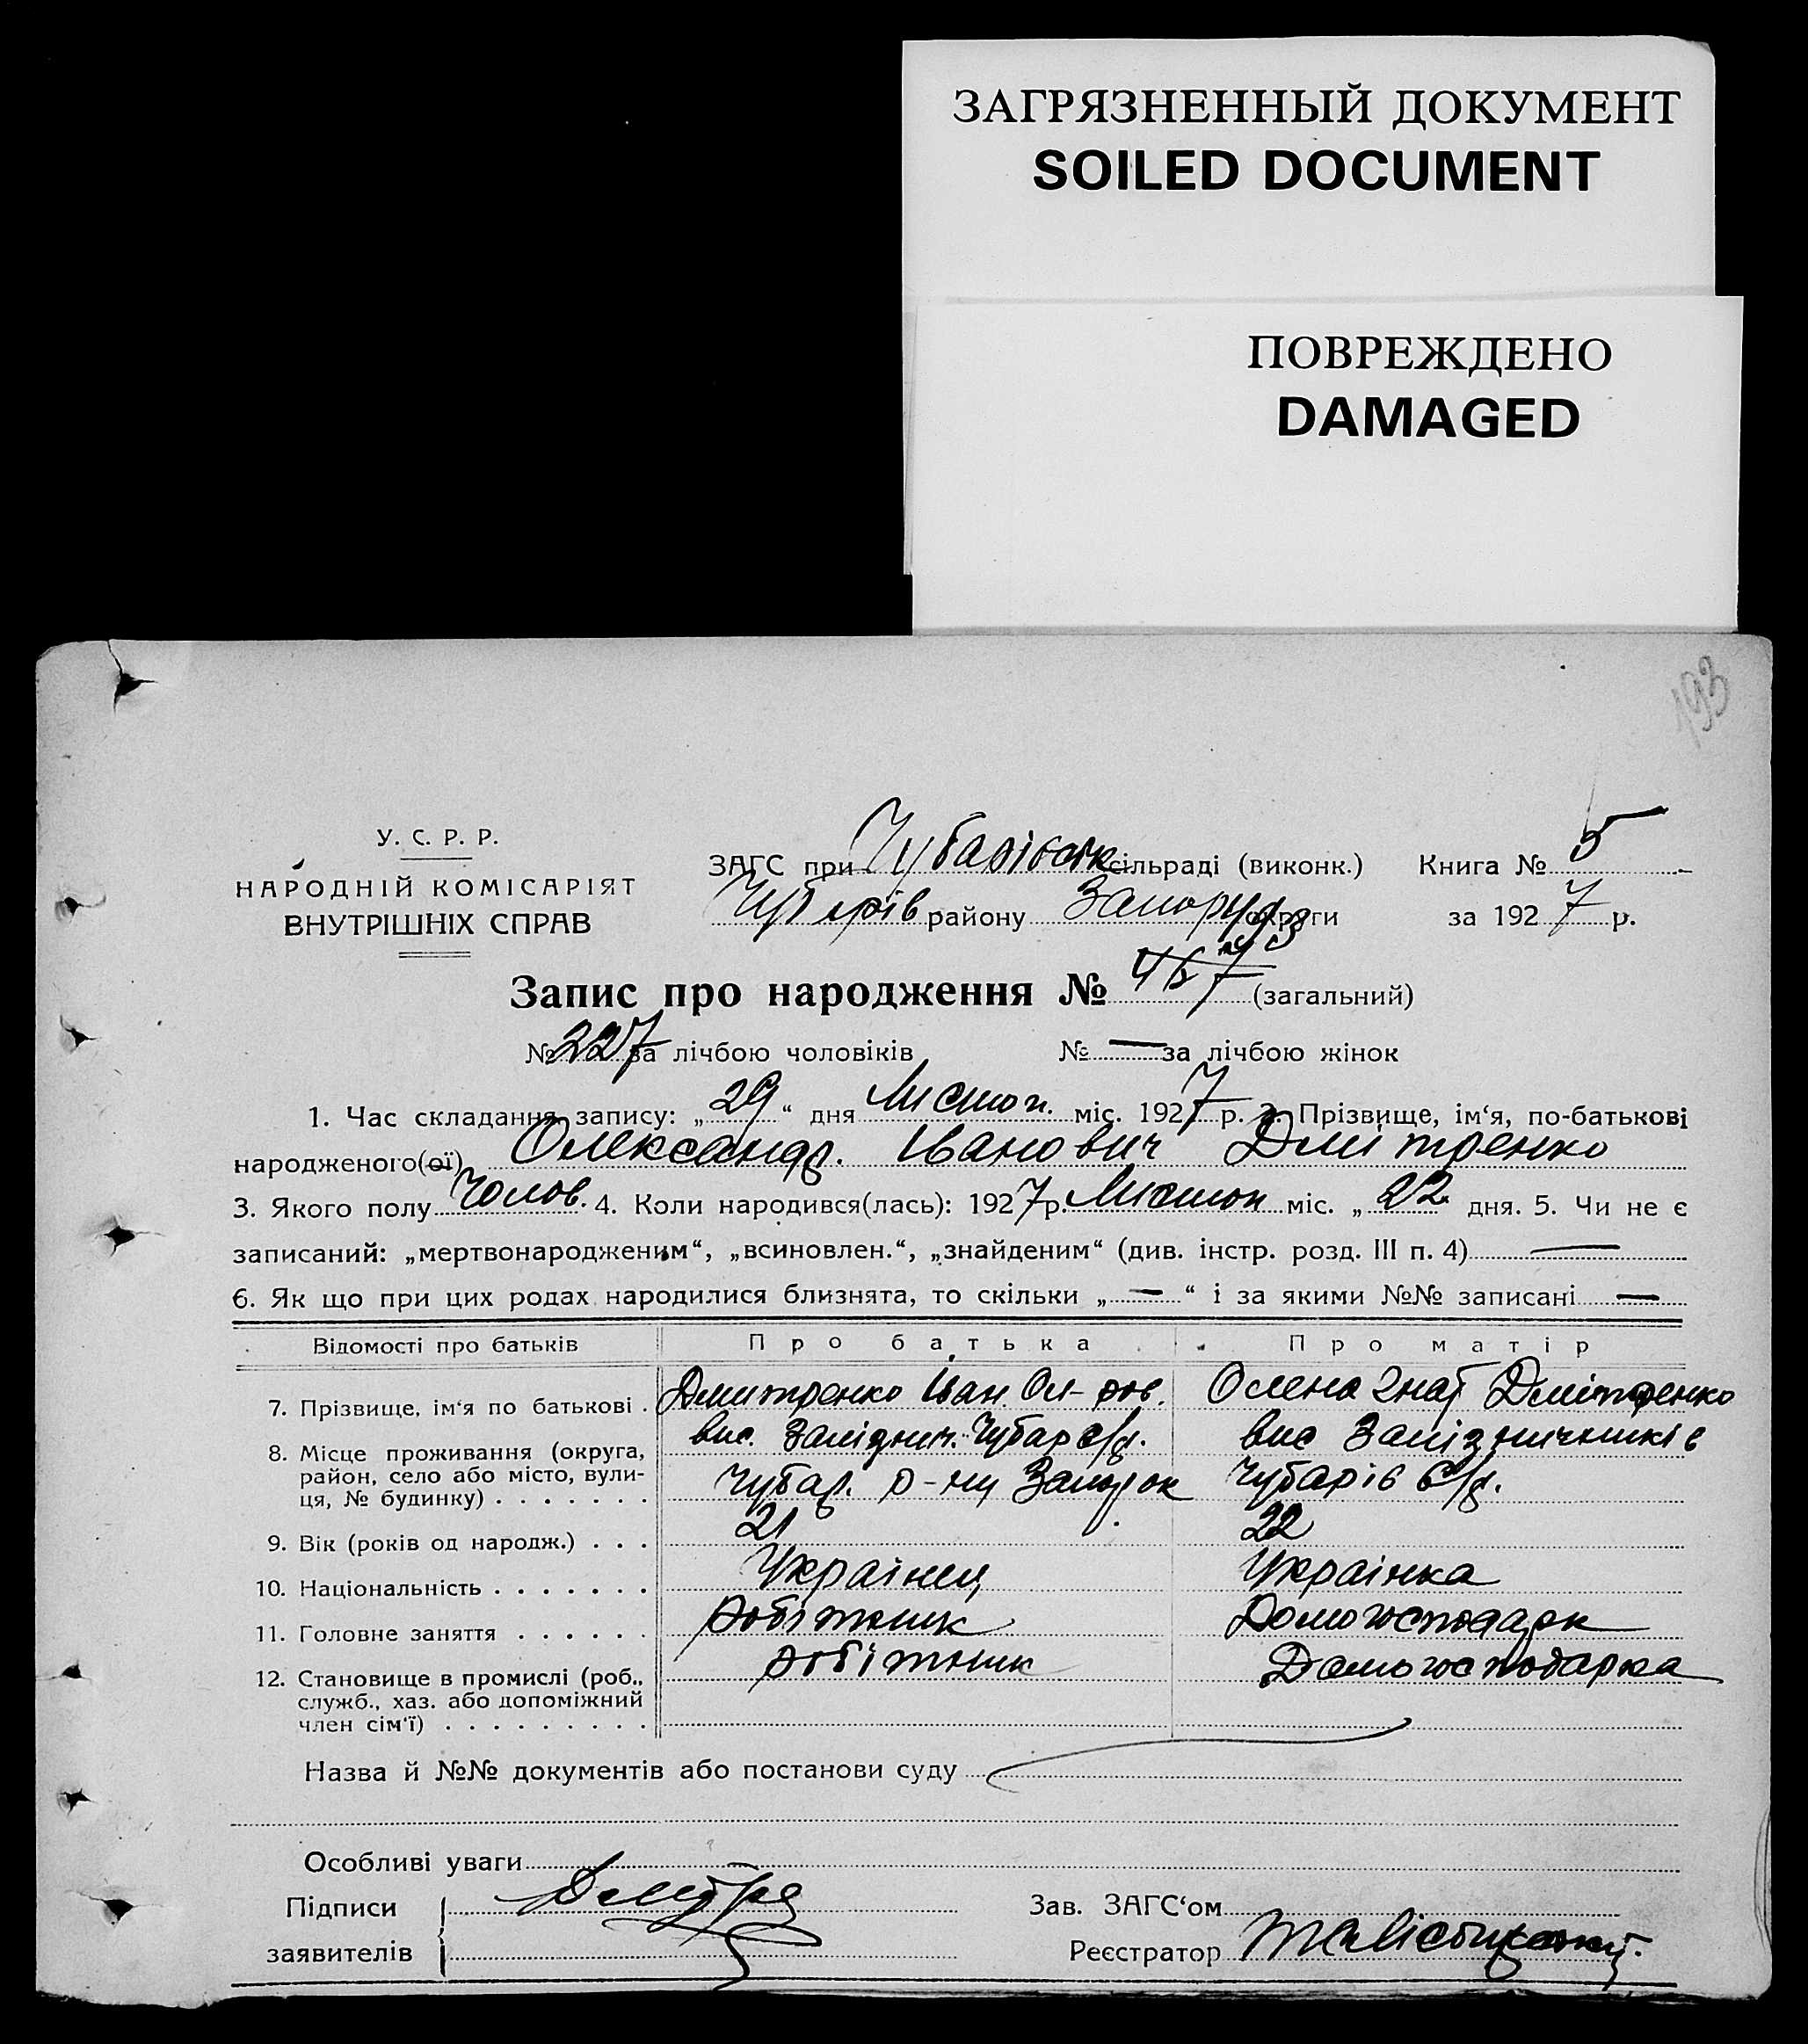 ЗАГРЯЗНЕННЫЙ ДОКУМЕНТ
SOILED DOCUMENT
ПОВРЕЖДЕНО
DAMAGED
193
У. С. Р. Р.
НАРОДНІЙ КОМІСАРІЯТ
ВНУТРІШНІХ СПРАВ
ЗАГС при Чубарівськ сільраді (виконк.) Книга № 5
Чубарів району округи за 1927 р.
Запис про народження № (загальний)
№ 227 за лічбою чоловіків № — за лічбою жінок
1. Час складання запису: „29“ дня Листоп. міс. 1927 р. 2. Прізвище, ім‘я, по-батькові
народженого(ої) Олександр. Іванович Дмітренко
3. Якого полу Чолов. 4. Коли народився(лась): 1927 р. Листоп міс. „22 дня. 5. Чи не є
записаний: „мертвонародженим“, „всиновлен.“, „знайденим“ (див. інстр. розд. III п. 4) —
6. Як що при цих родах народилися близнята, то скільки „—“ і за якими №№ записані —
Відомості про батьків Про батька Про матір
7. Прізвище, ім‘я по батькові . Дмитренко Іван Ол-ров. Олена Гнат Дмітренко
8. Місце проживання (округа, район, село або місто, вулиця, № будинку) . . . . . . .
вис. Залізнич. Чубар с/р. вис Залізничників
Чубар. р-ну Запорок Чубарів с/р.
9. Вік (років од народж.) . . . 21 22
10. Національність . . . . . . . Українец Українка
11. Головне заняття . . . . . . робітник Домогосподарк
12. Становище в промислі (роб., служб., хаз. або допоміжний член сім‘ї) . . . . . . . . . робітник Домогосподарка
Назва й №№ документів або постанови суду
Особливі уваги
Підписи
заявителів
Зав. ЗАГС‘ом
Реєстратор